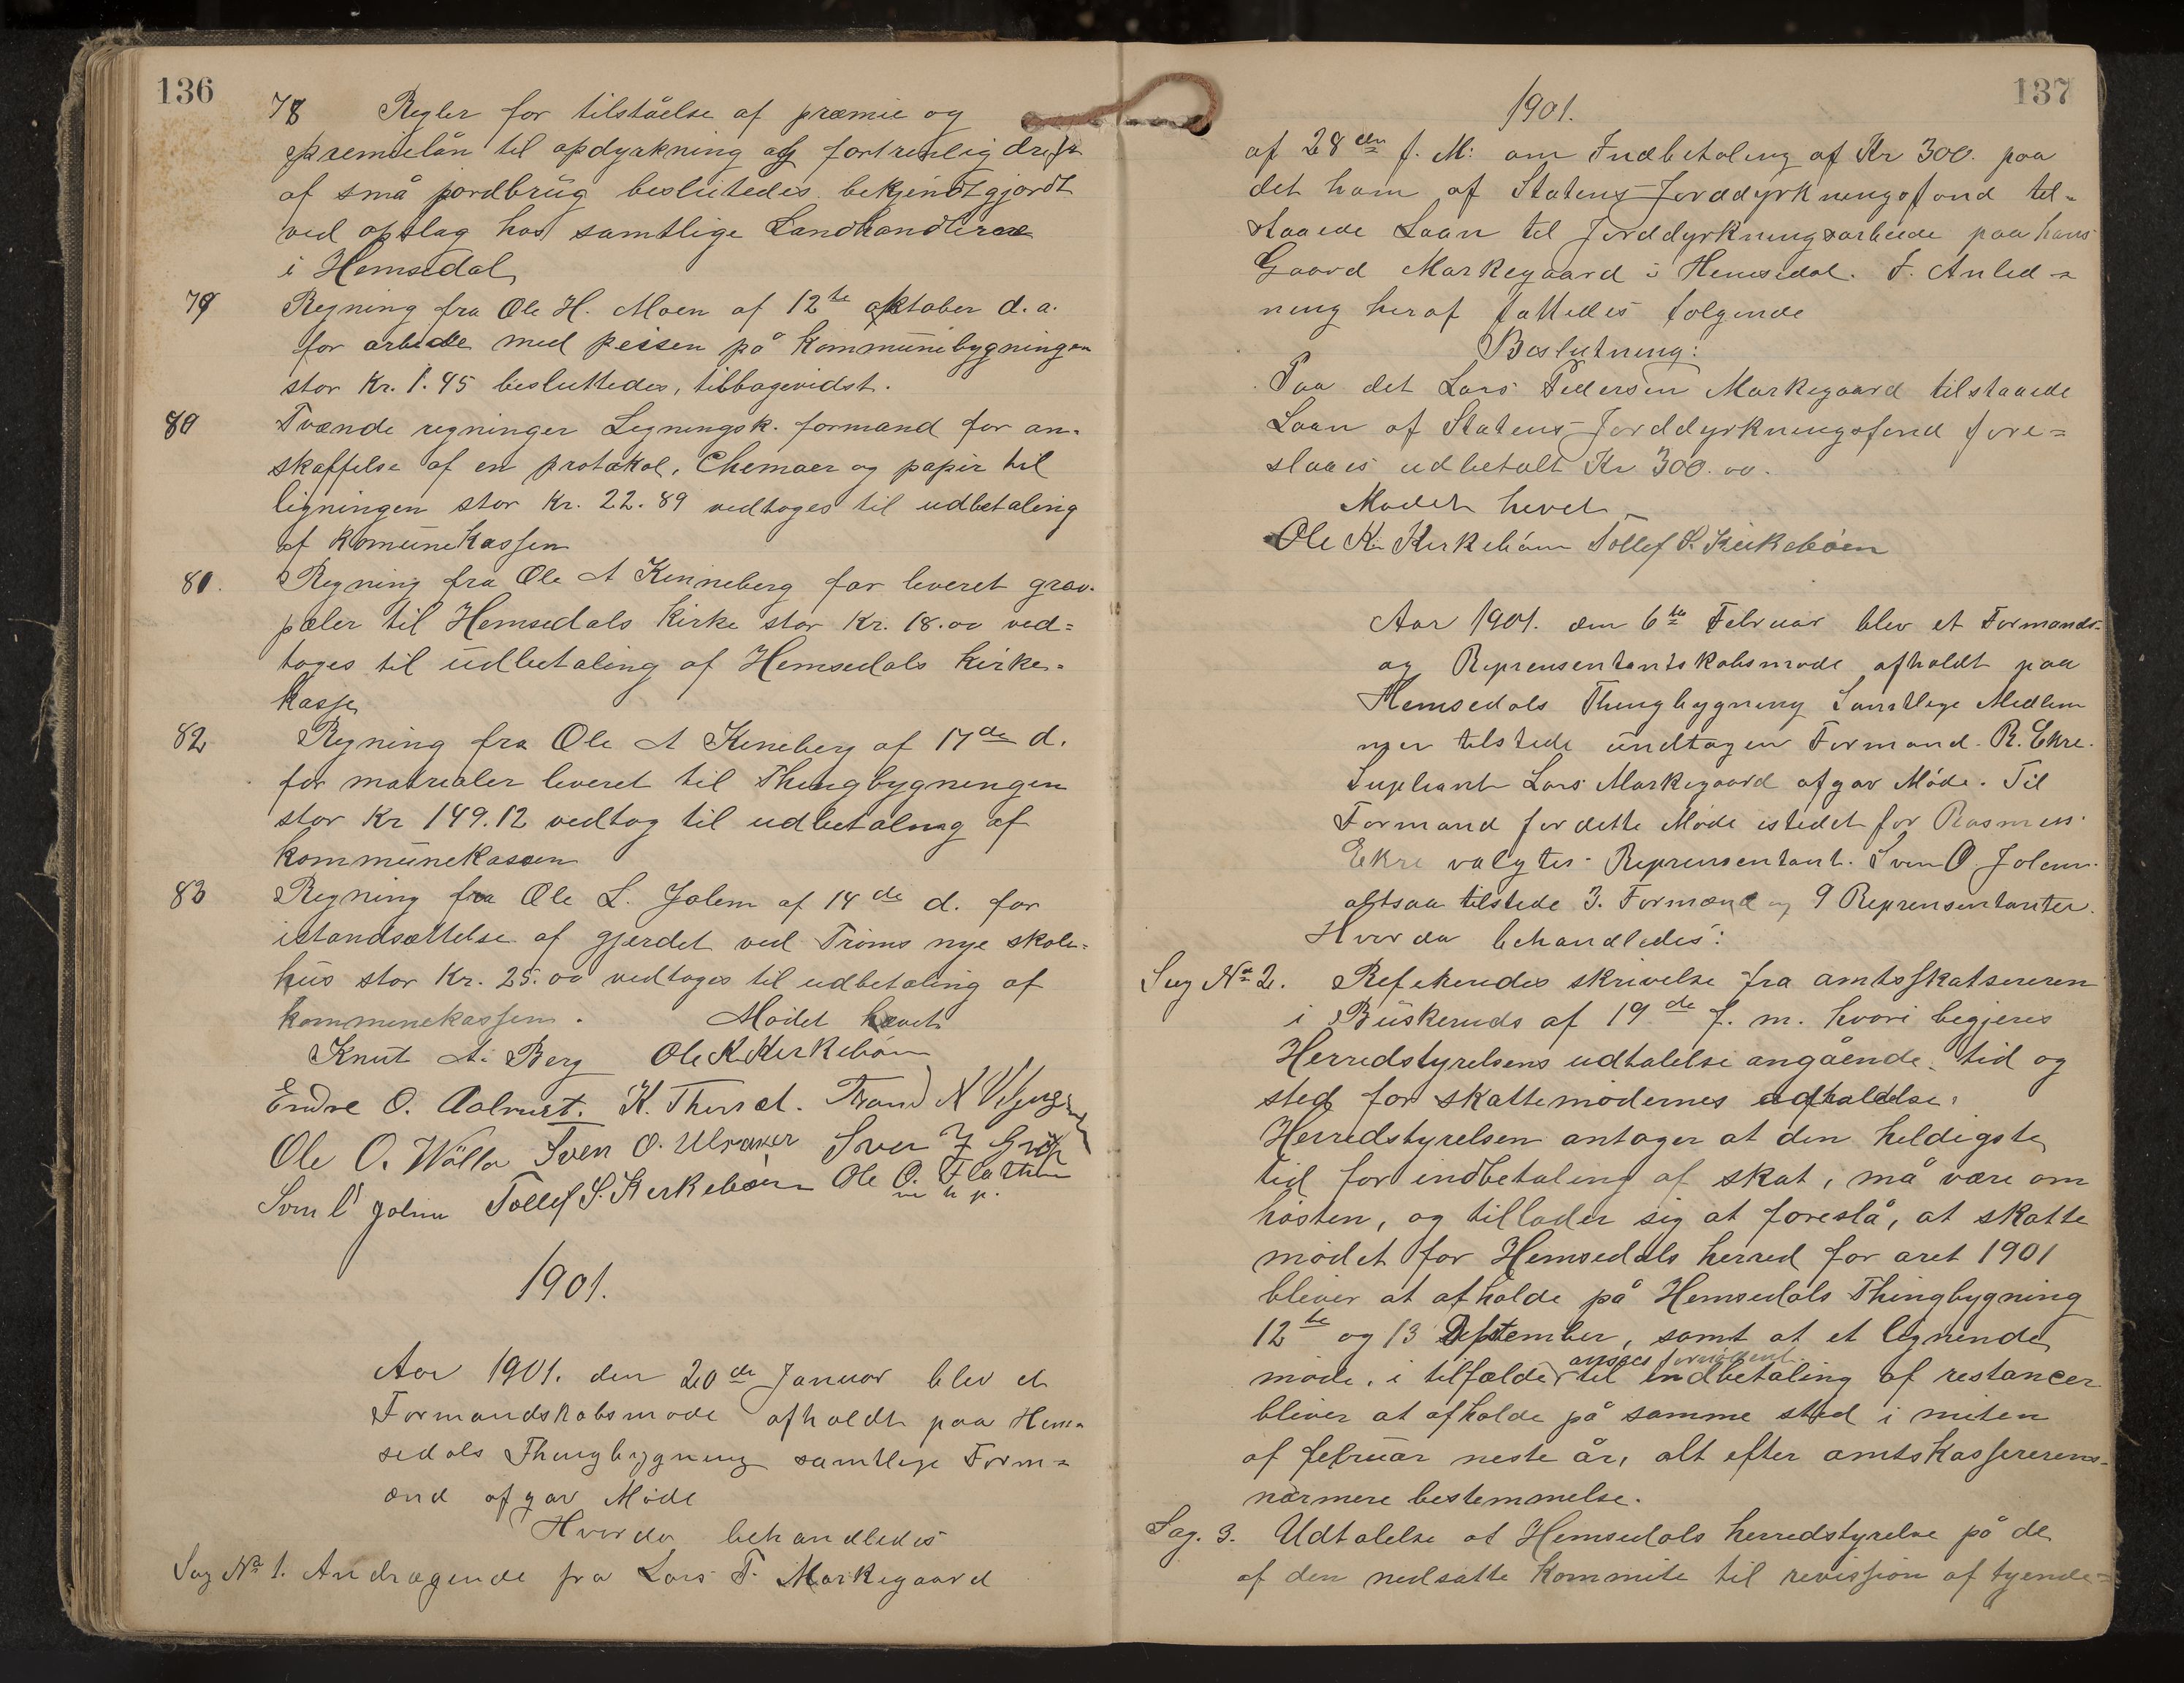 136
78 Regler for tilståelse af præmie og
premielån til opdyrkning og fortrinlig drift
af små jordbrüg beslütedes bekjendtgjordt
ved opslag hos samtlige Landhandlerne
i Hemsedal
79 Regning fra Ole H. Moen af 12te oktober d. a.
for arbeide med peisen på kommünebygningen
stor Kr. 1.45 besluttedes, tilbagevidst.
80 Tvænde regninger Ligningsk. formand for an-
skaffelse af en protokol, Chemaer og papir til
ligningen stor Kr. 22.89 vedtoges til udbetaling
af KomüneKassen
81. Regning fra Ole A Kinneberg for leveret grav-
pæler til Hemsedals Kirke stor Kr. 18.00 ved=
toges til üdbetaling af Hemsedals kirke-
kasse
82 Regning fra Ole A Kineberg af 17de d.
for matrialer leveret til Thingbygningen
stor Kr 149.12 vedtog til udbetaling af
kommüneKassen
83 Regning fra Ole L. Jolem af 14de d. for
istandsættelse af gjærdet ved Tröms nye skole=
hüs stor Kr. 25.00 vedtoges til udbetaling af
kommünekassen. Mödet hævet
Knut A. Berg Ole K. Kirkeböen
Endre O. K. Trond N
Ole O. Wølla Sven O. Ulsaker Iver
Sven O Jolem Tollef S. Kirkebøen Ole O. Flaten
m. h. p.
1901.
Aar 1901. den 20de Januar blev et
Formandskabsmøde afholdt paa Hem-
sedals Thingbygning samtlige Form=
ænd afgav Møde
Hvorda behandledes
Sag No 1. Andragende fra Lars T. Markegaard
137
1901.
af 28den f. M: om Indbetaling af Kr 300. paa
det ham af Statens Jorddyrkningsfond til-
staaede Laan til Jorddyrkningsarbeide paa hans
Gaard Markegaard i Hemsedal. I. Anled=
ning heraf fattedes følgende
Beslutning:
Paa det Lars Pedersen Markegaard tilstaaede
Laan af Statens Jorddyrkningsfond fore=
slaaes udbetalt Kr 300.00.
Mødet hevet
Ole K. Kirkebøen Tollef S. Kirkebøen
Aar 1901. den 6te Februar blev et Formands-
og Reprensentantskabsmøde afholdt paa
Hemsedals Thingbygning Samtlige Medlem
mer tilstede undtagen Formand. R. Ekre.
Supleant Lars Markegaard afgav Møde. Til
Formand for dette Møde istedet for Rasmus
Ekre valgtes Reprensentant. Sven O. Jolem.
altsaa tilstede 3. Formænd og 9 Reprensentanter.
Hvorda behandledes:
Sag No 2. Refereredes skrivelse fra amtsskatsereren
i Büskeruds af 19de f. m. hvori begjeres
Herredstyrelsens udtalelse angående tid og
sted for skattemödernes afholdelse.
Herredstyrelsen antager at den heldigste
tid for indbetaling af skat, må være om
hösten, og tillader sig at foreslå, at skatte
mödet for Hemsedals herred for aret 1901
bliver at afholde på Hemsedals Thingbygning
12te og 13 September, samt at et lignende
ansees fornødent
möde, i tilfælde til indbetaling af restancer
bliver at afholde på samme sted i miten
af februar neste år, alt efter amtsKassererens
nærmere bestemmelse.
Sag. 3. Udtalelse at Hemsedals herredstyrelse på de
af den nedsatte Kommite til revission af tyende=